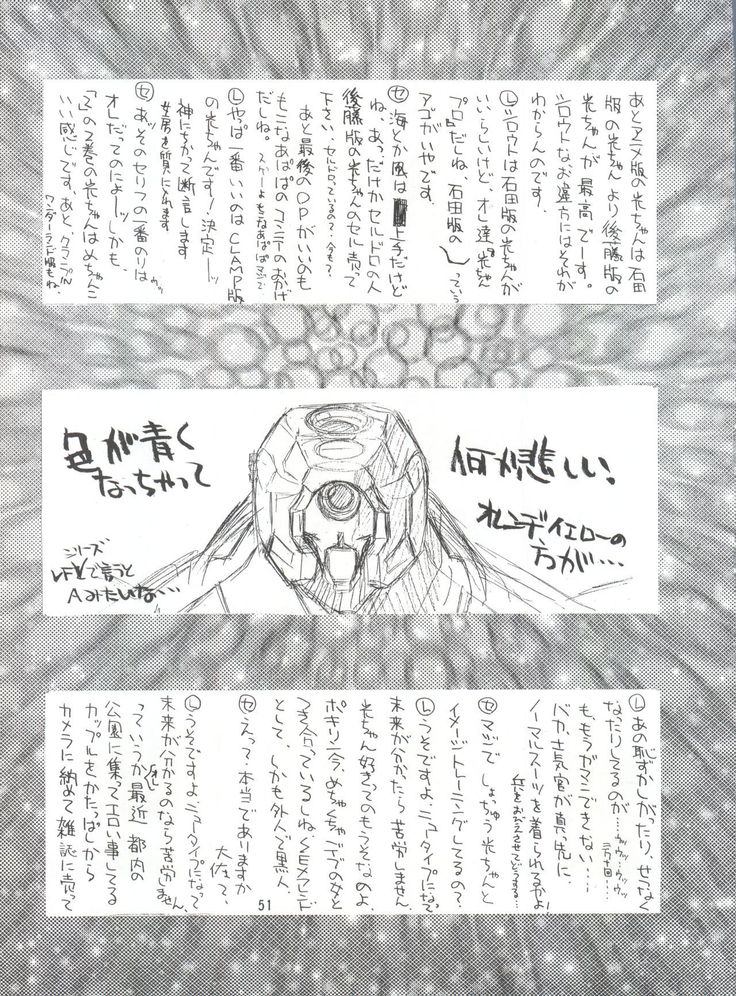 あとアニメ版の光ちゃんは石田
版の光ちゃんより後藤版の
光ちゃんが最高でーす。
シロウトなお達方にはそれが
わからんのです。
Ⓛシロウトは石田版の光ちゃんが
いいらしいけど、オレ達『光ちゃ
プロ』だしね、石田版の
って、いう
アゴがいやです。
㋝海とか風は上手だけど
ね、あっだけかセルドロの人
後藤版の光ちゃんのセル売って
下さい、セルドロっているの？今も？
あと最後のOPがいいのも
もこなあぱぱのコンテのおかげ
だしね。スゲーよもこなあぱぱマジで
Ⓛやっぱ一番いいのはCLAMP版
の光ちゃんです！決定ーッ
神にちかって断言します
女房を質に入れます
㋝あッそのセリフの一番のりは
オレだってのによーッしかも、
「2」の2巻の光ちゃんはめちゃんこ
いい感じです。あと、クマニプル
ワンダーランド版もね、
何が悲しい!
オレンヂイエローの
方が…
色が青く
なっちゃって
シリーズ
で言うと
Aみたいな…
Ⓛあの恥ずかしがったり、せつなく
なったりしてるのが…ウッウッ…ウッウッ
も、もうガマンできない…
バカ、士気官が真っ先に、
ノーマルスーツを着られるかよ!
兵をおびえさせてどうする…
㋝マジでしょっちゅう光ちゃんと
イメージトレーニングしてるの？
Ⓛうそですよ、ニュータイプになって
未来が分かったら苦労しません
光ちゃん好きってのもうそなのよ、
ポキリ一今、めちゃくちゃデブの女と
つき合っているしね、SEXフレンド
として、しかも外人で黒人、
㋝えっ？本当でありますか
大佐って、
Ⓛうそですよ、ニュータイプになって
未来が分かるのなら苦労しません
っていうか最近、都内の
公園に集ってエロい事してる
カップルをかたっぱしから
カメラに納めて雑誌に売って
51